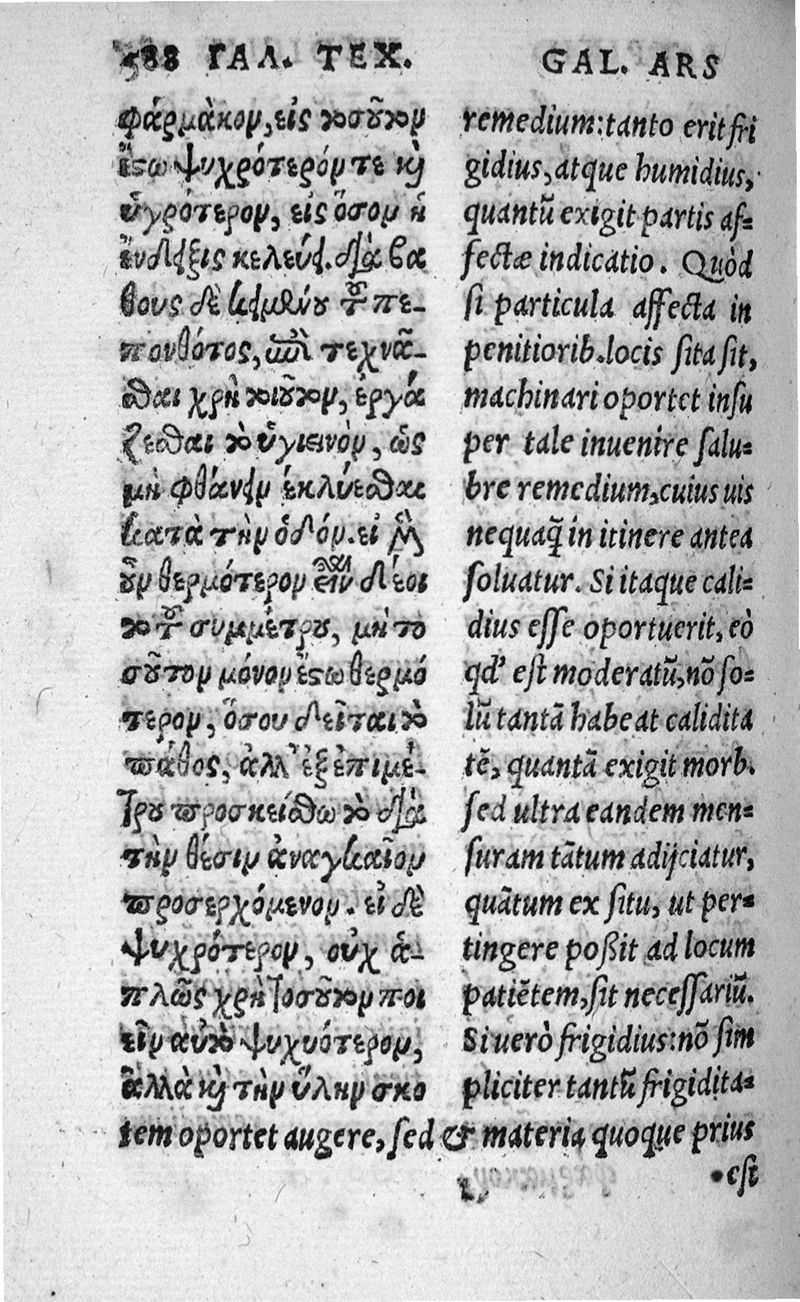 588 ΓΑΛ. ΤΕΧ.
φάρμακον, εἰς τοσοῦτον
ἔστω ψυχρότερόν τε καὶ
ὑγρότερον, εἰς ὅσον ἡ
ἔνδειξις κελεύει. διὰ βα
θους δὲ κειμένου τοῦ πε-
πονθότος, ἐπιτεχνᾶ-
σθαι χρὴ τοιοῦτον, ἐργά
ζεσθαι τὸ ὑγιεινὸν, ὡς
μὴ φθάνειν ἐκλύεσθαι
κατὰ τὴν ὁδόν. εἰ μὲν
οὖν θερμότερον εἶναι δέοι
τὸ τοῦ συμμέτρου, μὴ το
σοῦτον μόνον ἔστω θερμό
τερον, ὅσου δεῖται τὸ
πάθος, ἀλλ' ἐξ ἐπιμέ-
τρου προσκείσθω τὸ διὰ
τὴν θέσιν ἀναγκαῖον
προσερχόμενον. εἰ δὲ
ψυχρότερον, οὐχ ἁ-
πλῶς χρὴ τοσοῦτον ποι
εῖν αὐτὸ ψυχυότερον,
ἀλλὰ καὶ τὴν ὕλην σκο
GAL. ARS
remedium: tanto erit fri
gidius, atque humidius,
quantũ exigit partis af=
fectæ indicatio. Quòd
si particula affecta in
penitiorib. locis sita sit,
machinari oportet insu
per tale inuenire salu=
bre remedium, cuius uis
nequaq̃ in itinere antea
soluatur. Si itaque cali=
dius esse oportuerit, eò
qd' est moderatũ, nõ so=
lũ tantã habeat calidita
tẽ, quantã exigit morb.
sed ultra eandem men=
suram tãtum adijciatur,
quãtum ex situ, ut per=
tingere poßit ad locum
patiẽtem, sit necessariũ.
Si uerò frigidius: nõ sim
pliciter tantũ frigidita=
tem oportet augere, sed & materia quoque prius
est